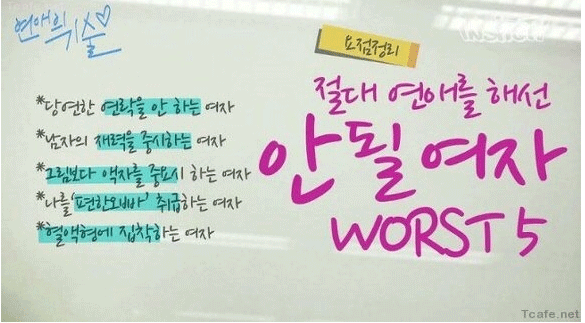 연애의 기술
*당연한 연락을 안 하는 여자
*남자의 재력을 중시하는 여자
*그림보다 액자를 중요시 하는 여자
*나를 '편한오빠' 취급하는 여자
*혈액형에 집착하는 여자
요점정리
절대 연애를 해선
안 될 여자
WORST 5
Tcafe.net